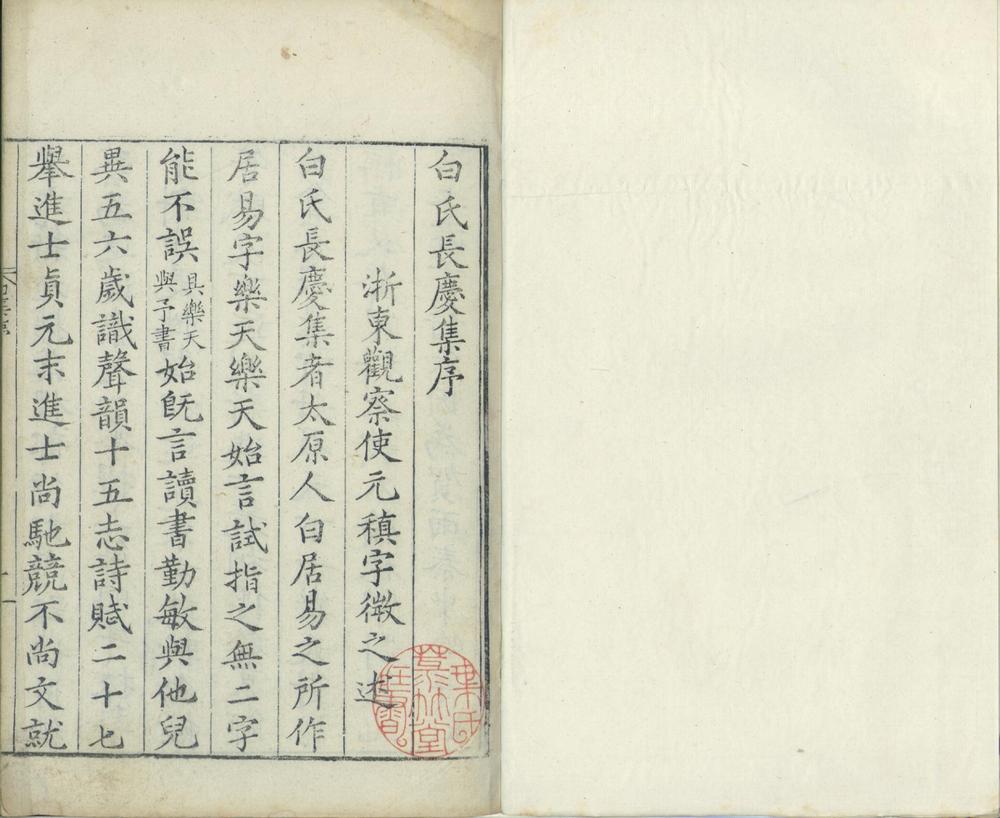 白氏長慶集序
浙東觀察使元稹字微之述
白氏長慶集者太原人白居易之所作
居易字樂天樂天始言試指之無二字
能不誤具樂天與予書始旣言讀書勤敏與他兒
異五六歲識聲韻十五志詩賦二十七
舉進士貞元末進士尚馳競不尚文就
葉氏
菉竹堂